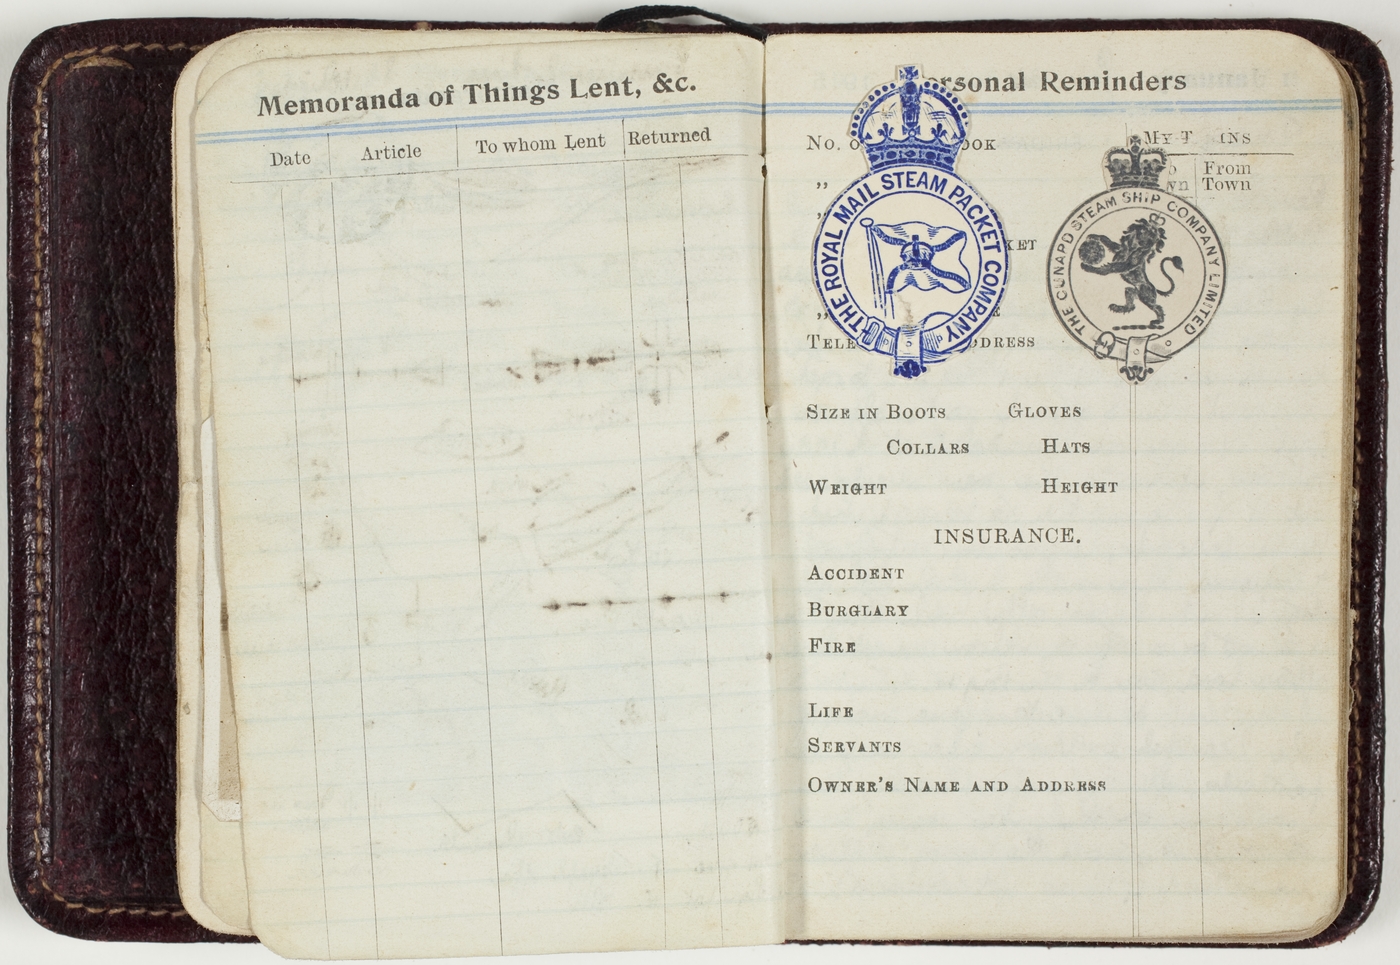 Memoranda of Things Lent, &c.
Date Article To whom Lent Returned
ersonal Reminders
No. o OOK
MY T INS
„
From
Town
wn
„
KET
„
E
TELE DDRESS
THE ROYAL MAIL STEAM PACKET COMPANY
THE CUNARD STEAM SHIP COMPANY LIMITED
SIZE IN BOOTS GLOVES
COLLARS HATS
WEIGHT HEIGHT
INSURANCE.
ACCIDENT
BURGLARY
FIRE
LIFE
SERVANTS
OWNER'S NAME AND ADDRESS